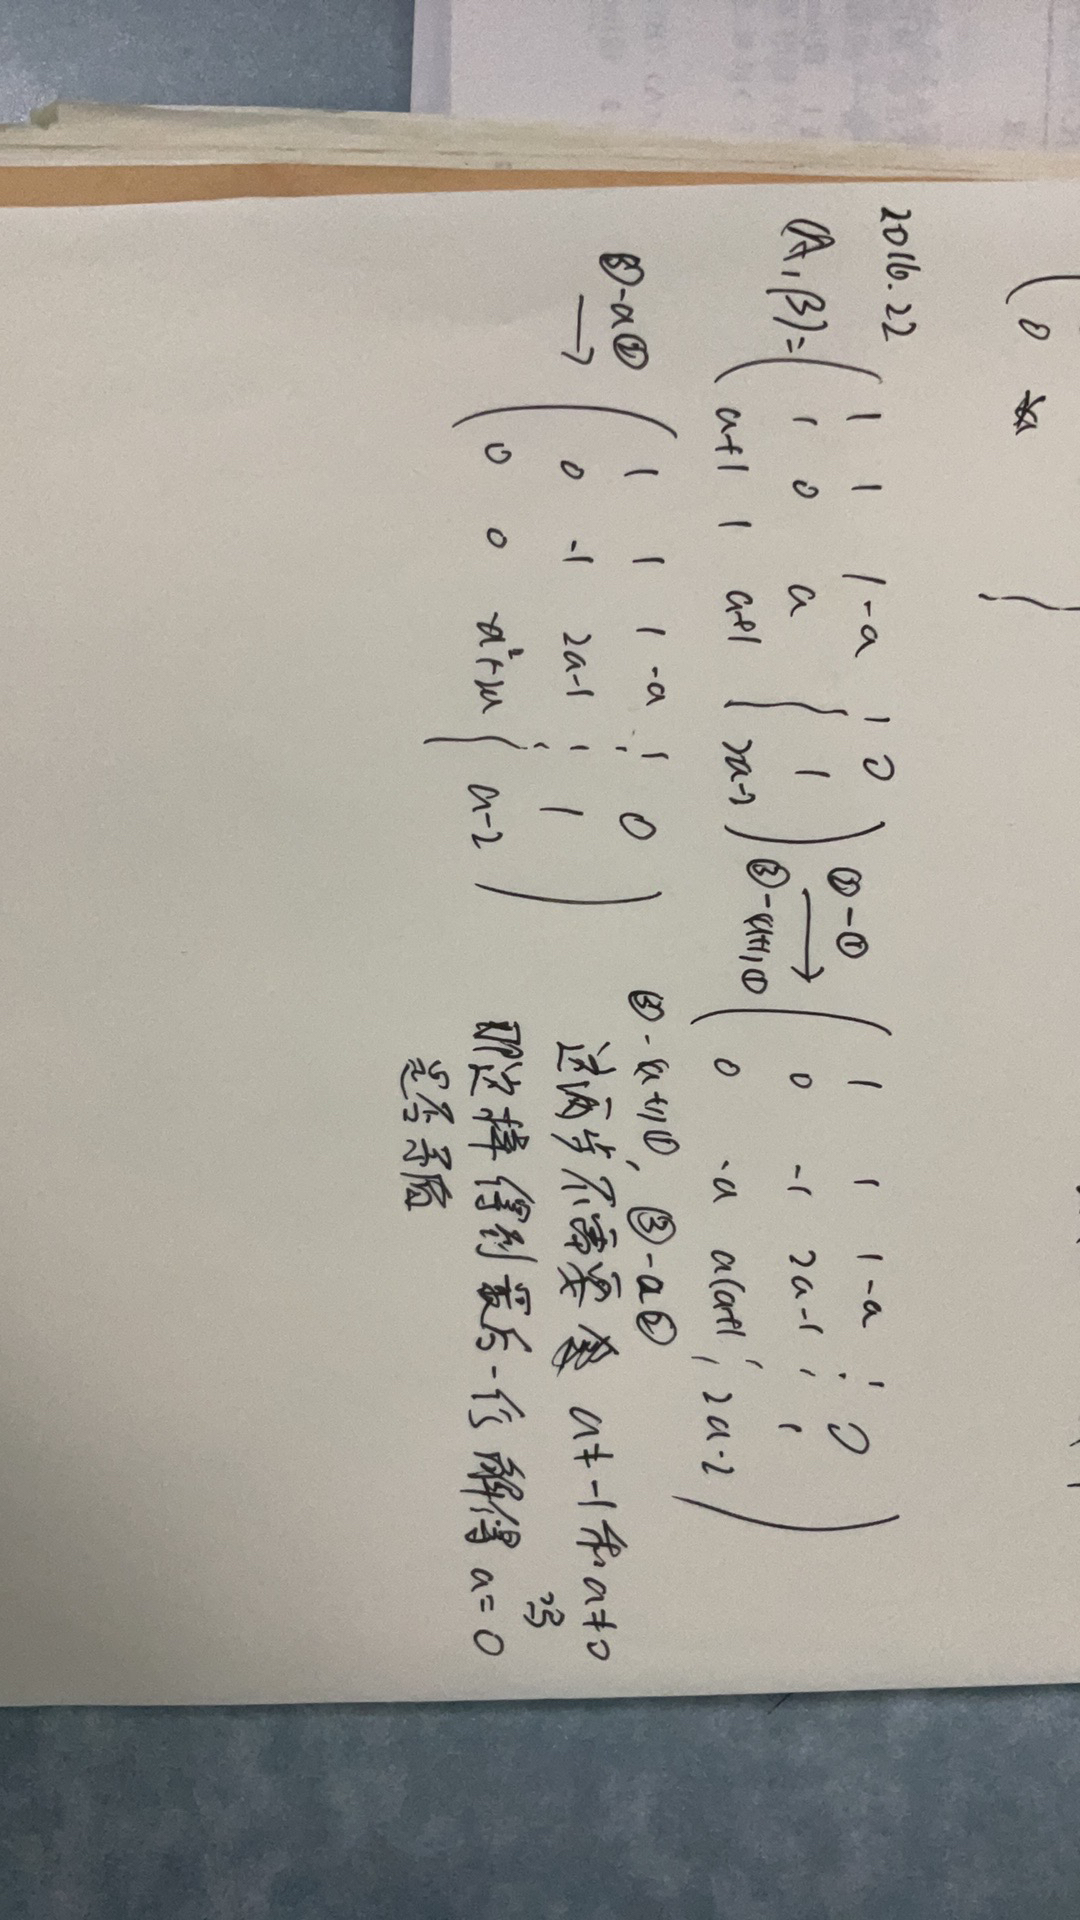 ( 0 )
2016.22
(A,β)= ( 1 1 1-a | 0
1 0 a | 1
a+1 1 a+1 | 2a-2 )
②-①
③-(a+1)①
→
( 1 1 1-a ⋮ 0
0 -1 2a-1 ⋮ 1
0 -a a(a+1) ⋮ 2a-2 )
③-a②
→
( 1 1 1-a ⋮ 0
0 -1 2a-1 ⋮ 1
0 0 -a²+2a ⋮ a-2 )
③-(a+1)①, ③-a②
这两步不需要 a≠-1和a≠0吗
那这样得到最后一行解得a=0
是否矛盾